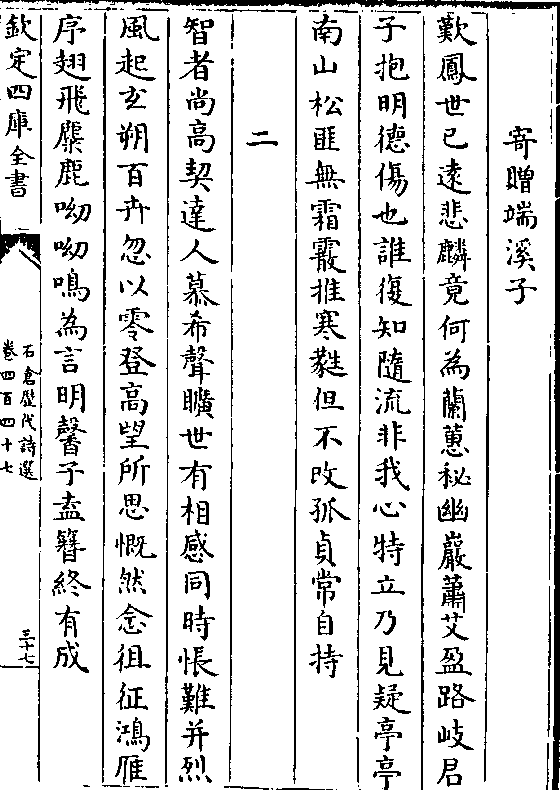 寄贈端溪子
歎鳳世已遠悲麟竟何為蘭蕙秘幽巖蕭艾盈路岐君
子抱明德傷也誰復知隨流非我心特立乃見疑亭亭
南山松匪無霜霰推寒㲠但不改孤貞常自持
二
智者尚高契達人慕希聲曠世有相感同時悵難并烈
風起玄朔百卉忽以零登高望所思慨然念徂征鴻雁
序翅飛麋鹿呦呦鳴為言明馨子盍簪終有成
欽定四庫全書
石倉歷代詩選
卷四百四十七
三十七